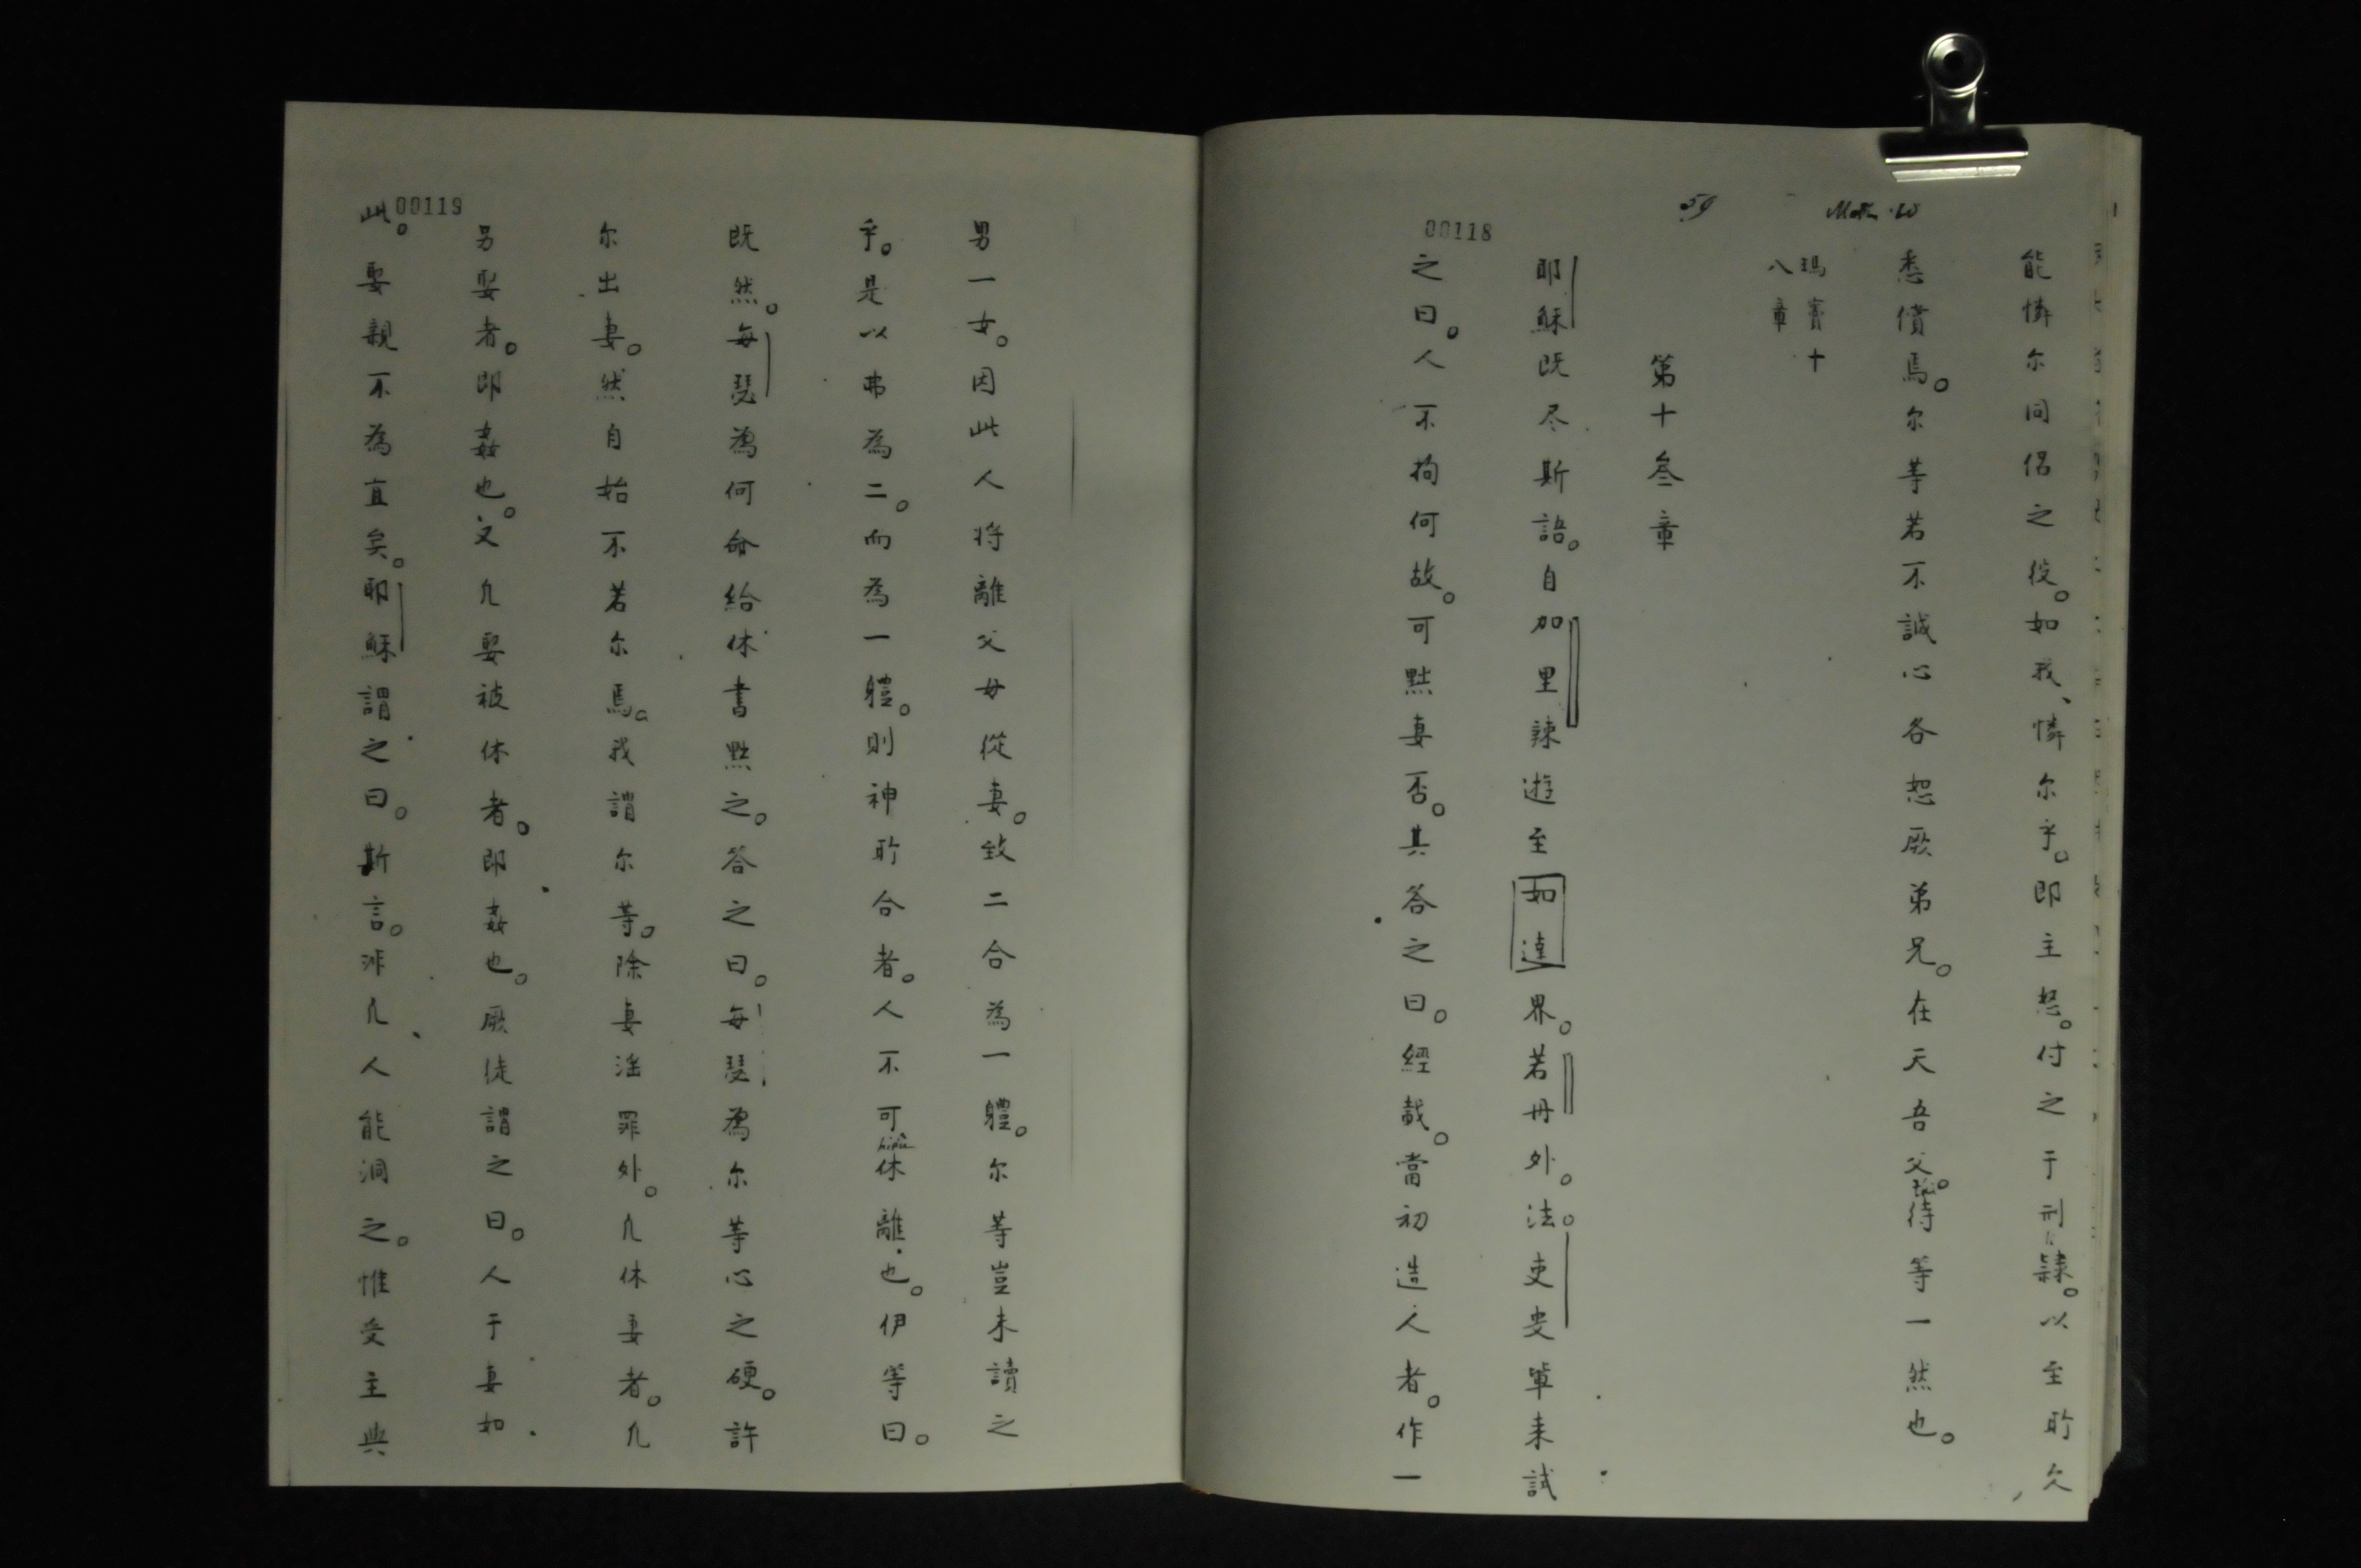 59
00118
能憐尔同侶之役。如我、憐尔乎。即主怒。付之于刑隸。以至所欠
悉償焉。尔等若不誠心各恕厥弟兄。在天吾父。待等一然也。
瑪竇十
八章
第十叁章
耶穌既尽斯語。自加里辣遊至如達界。若丹外。法。吏叟單来試
之曰。人不拘何故。可黜妻否。其答之曰。經載。當初造人者。作一
00119
男一女。因此人将離父母從妻。致二合為一軆。尔等豈未讀之
乎。是以弗為二。而為一軆。則神所合者。人不可休離也。伊等曰。
既然。每瑟為何命給休書黜之。答之曰。每瑟為尔等心之硬。許
尔出妻。然自始不若尔焉。我謂尔等。除妻淫罪外。凡休妻者。凡
另娶者。即姦也。又凡娶被休者。即姦也。厥徒謂之曰。人于妻如
此。娶親不為直矣。耶穌謂之曰。斯言。非凡人能洞之。惟受主典